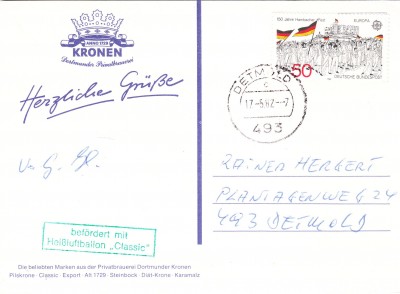 ANNO 1729
KRONEN
Dortmunder Privatbrauerei
Herzliche Grüße
befördert mit
Heißluftballon „Classic"
Die beliebten Marken aus der Privatbrauerei Dortmunder Kronen
Pilskrone · Classic · Export · Alt 1729 · Steinbock · Diät-Krone · Karamalz
150 Jahre Hambacher Fest
EUROPA
50
DEUTSCHE BUNDESPOST
DETMOLD
17.-5.82.-7
493
RAINER HERBERT
PLANTAGENWEG 24
493 DETMOLD